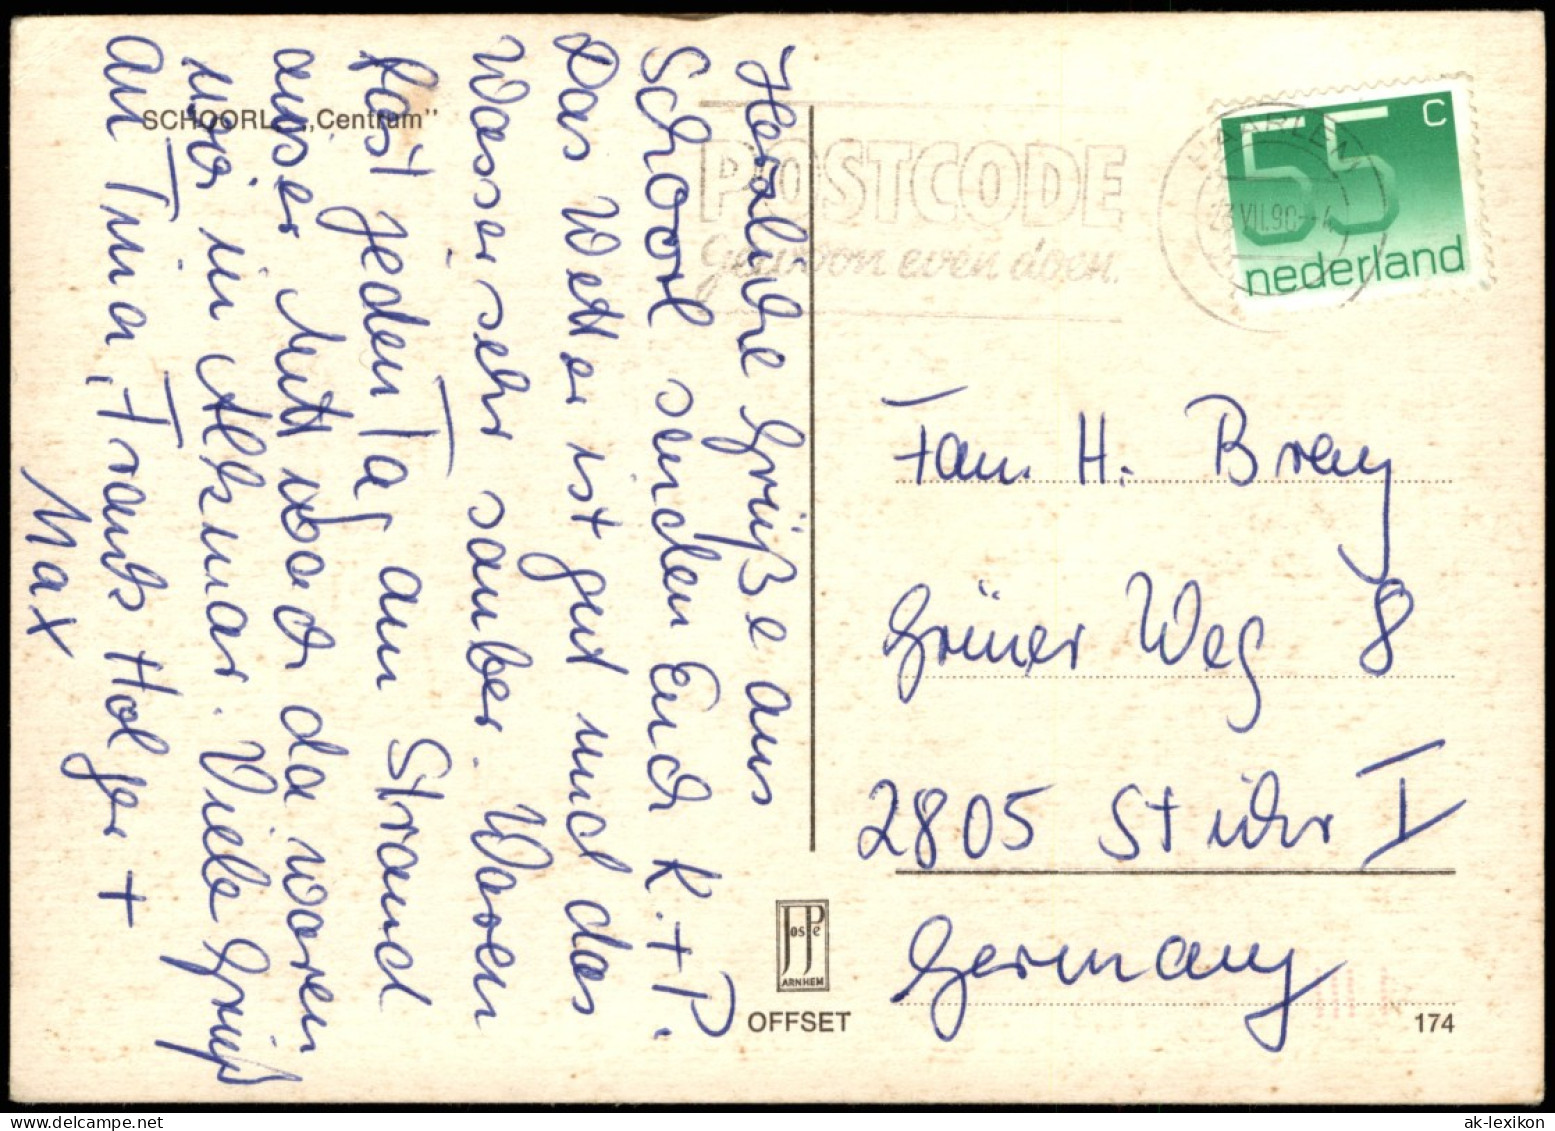 SCHOORL „Centrum”
Herzliche Grüße aus
Schoorl senden Euch K. + P.
Das Wetter ist gut und das
Wasser sehr sauber. Waren
fast jeden Tag am Strand
ausser Mittwoch da waren
wir in Alkmar. Viele Grüß
an Tina, Frank Holger +
Max
POSTCODE
gewoon even doen.
HAARLEM
VII.90
55 c
nederland
Fam. H. Bray
Grüner Weg 8
2805 Stuhr I
Germany
JosPe
ARNHEM
OFFSET
174
ak-lexikon